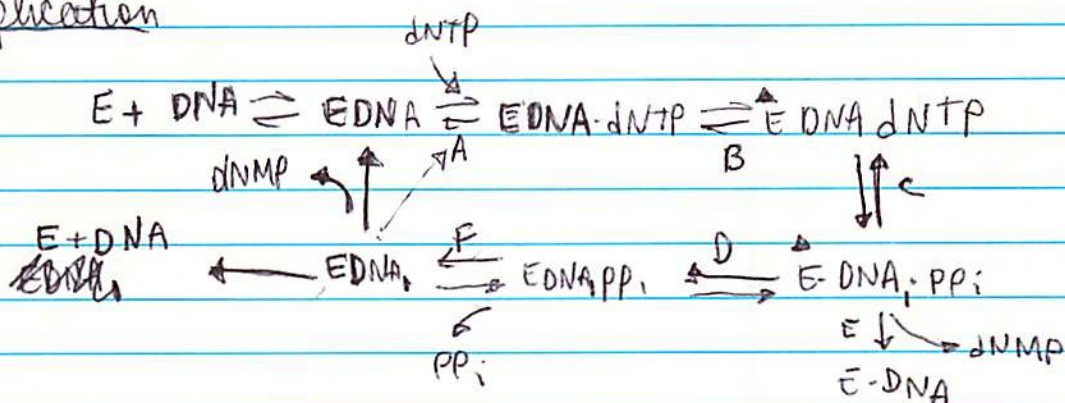 plication
dNTP
E + DNA ⇌ EDNA ⇌ EDNA·dNTP ⇌ E DNA dNTP
A
B
dNMP
C
E+DNA ← EDNA₁ F ⇌ EDNA₁PPi D ⇌ E-DNA₁·PPi
PPi
E ↓ → dNMP
E-DNA